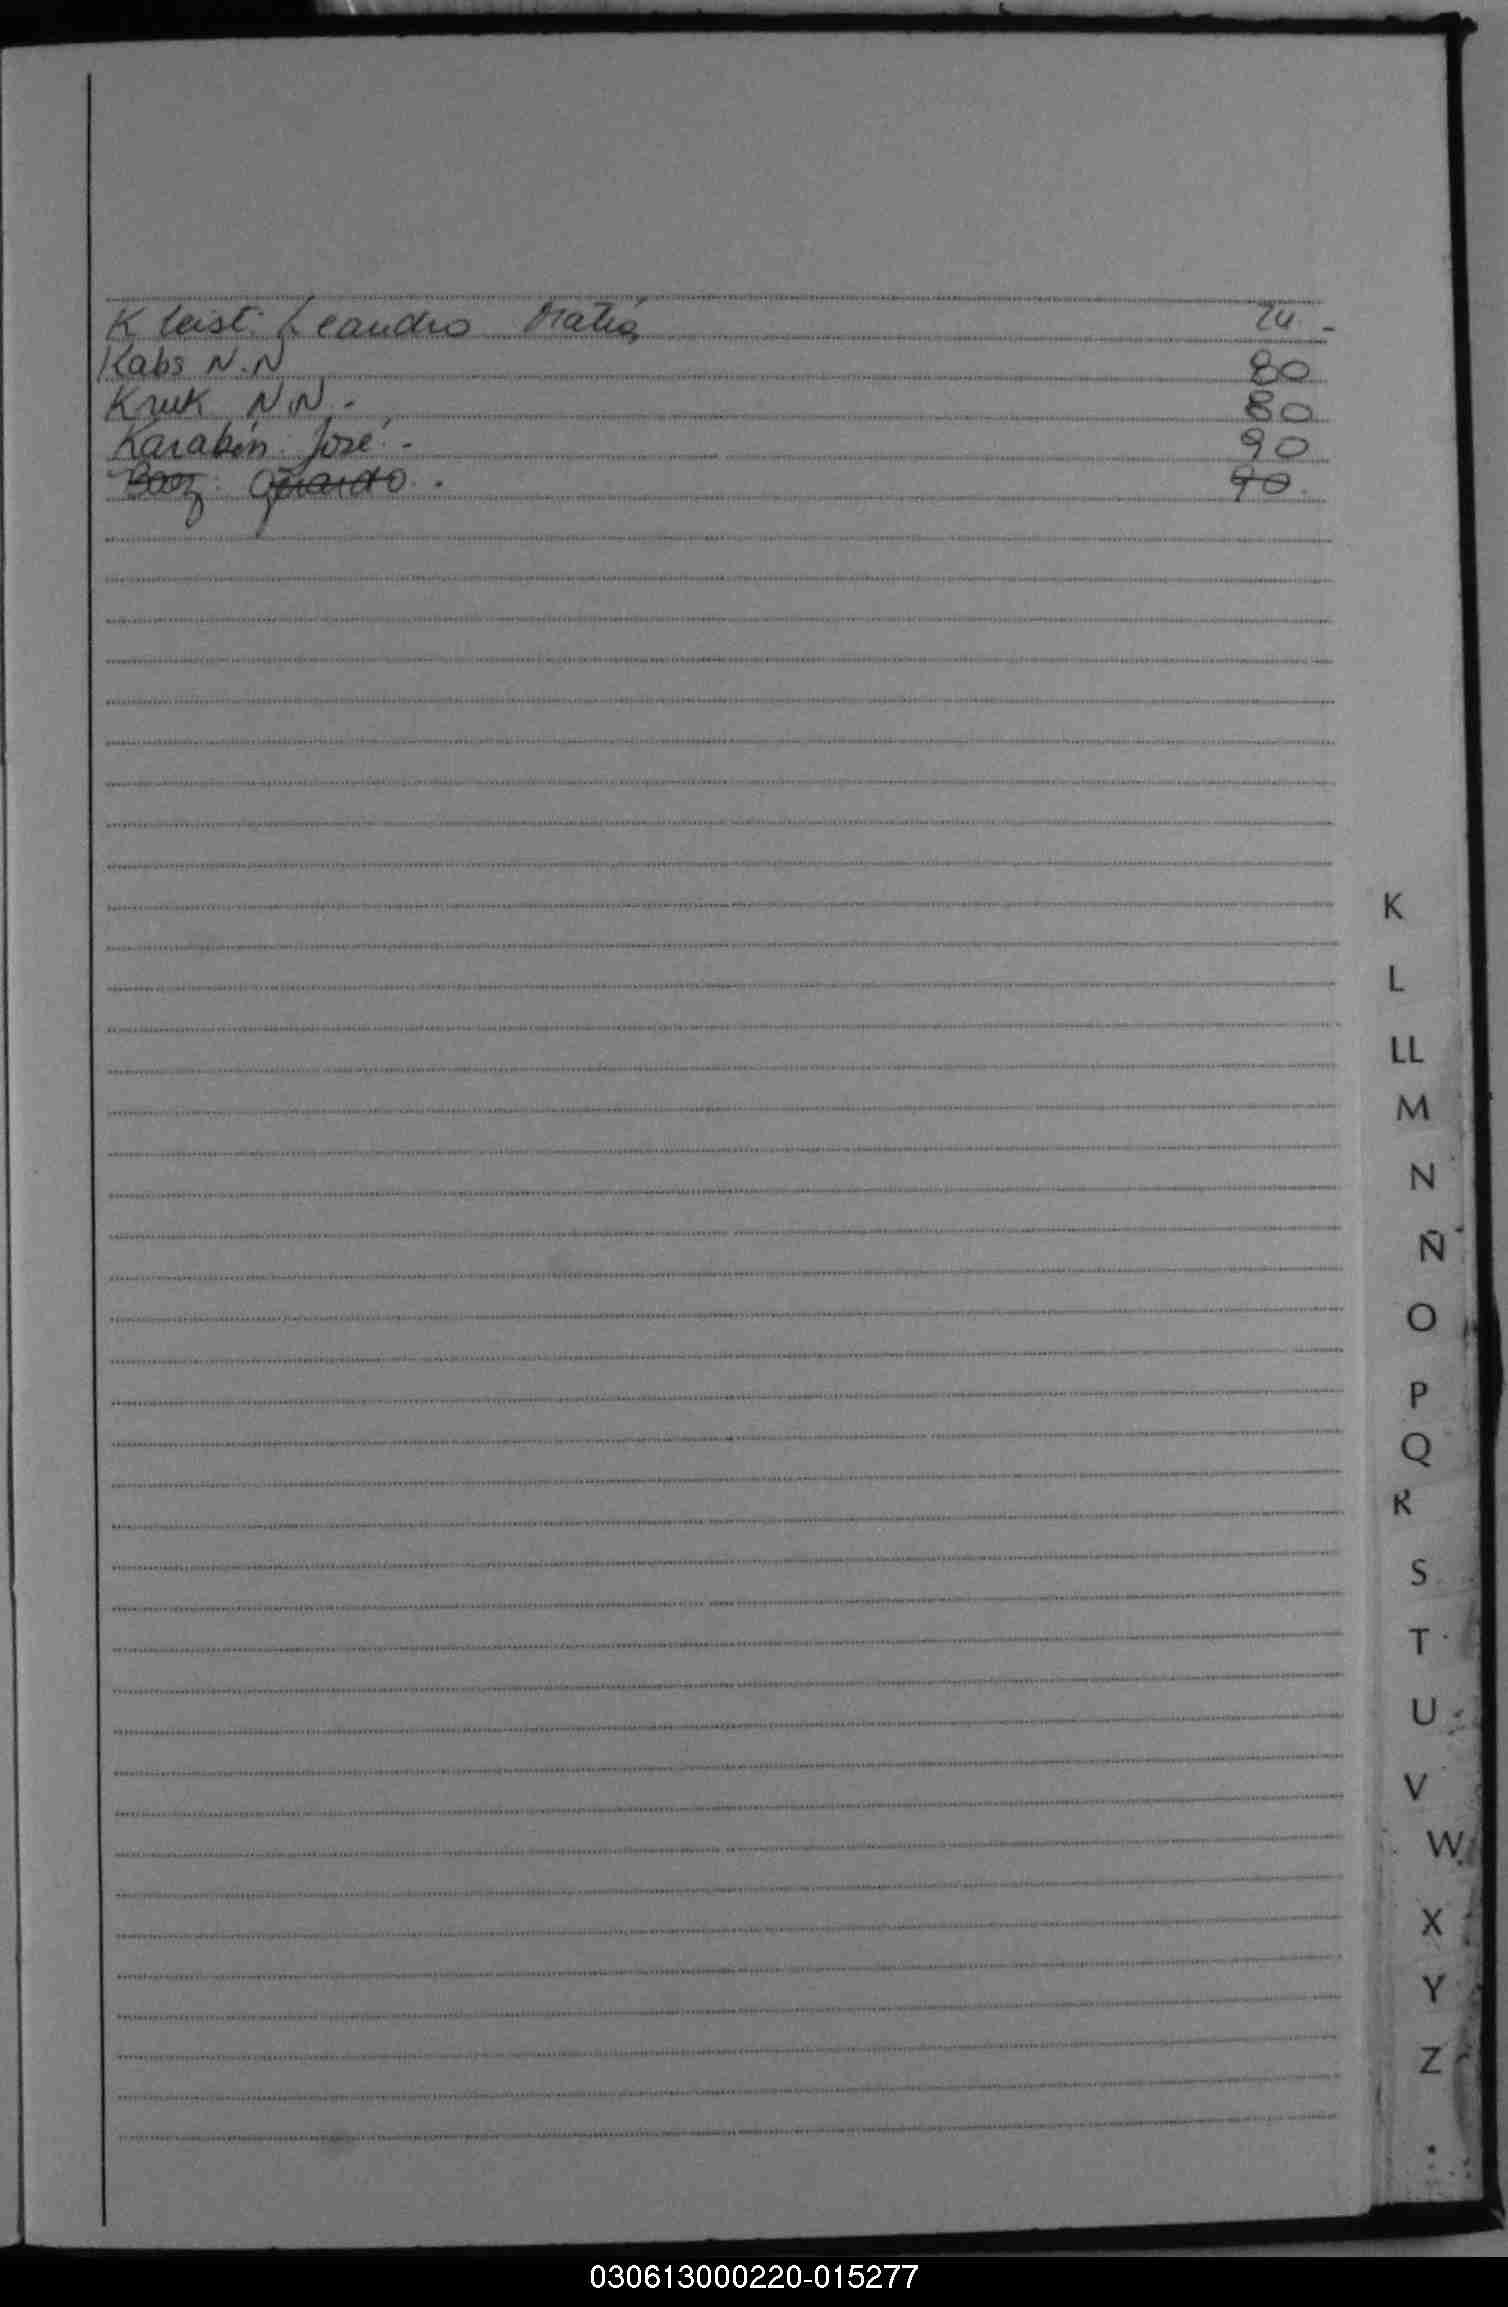 Kleist. Leandro Matías 24 -
Kabs N.N 80
Kruk N.N. - 80
Karabin José. - 90
Baez. Gerardo. 90.
K
L
LL
M
N
Ñ
O
P
Q
R
S
T
U
V
W
X
Y
Z
030613000220-015277